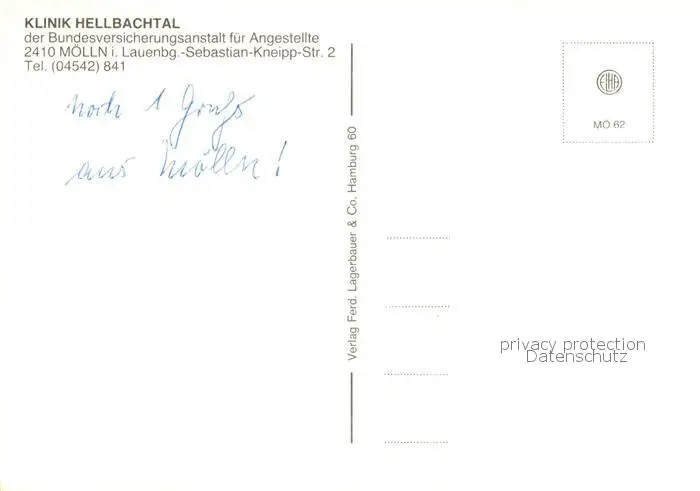 KLINIK HELLBACHTAL
der Bundesversicherungsanstalt für Angestellte
2410 MÖLLN i. Lauenbg.-Sebastian-Kneipp-Str. 2
Tel. (04542) 841
noch 1 Gruß
aus Mölln!
Verlag Ferd. Lagerbauer & Co. Hamburg 60
MÖ 62
privacy protection
Datenschutz